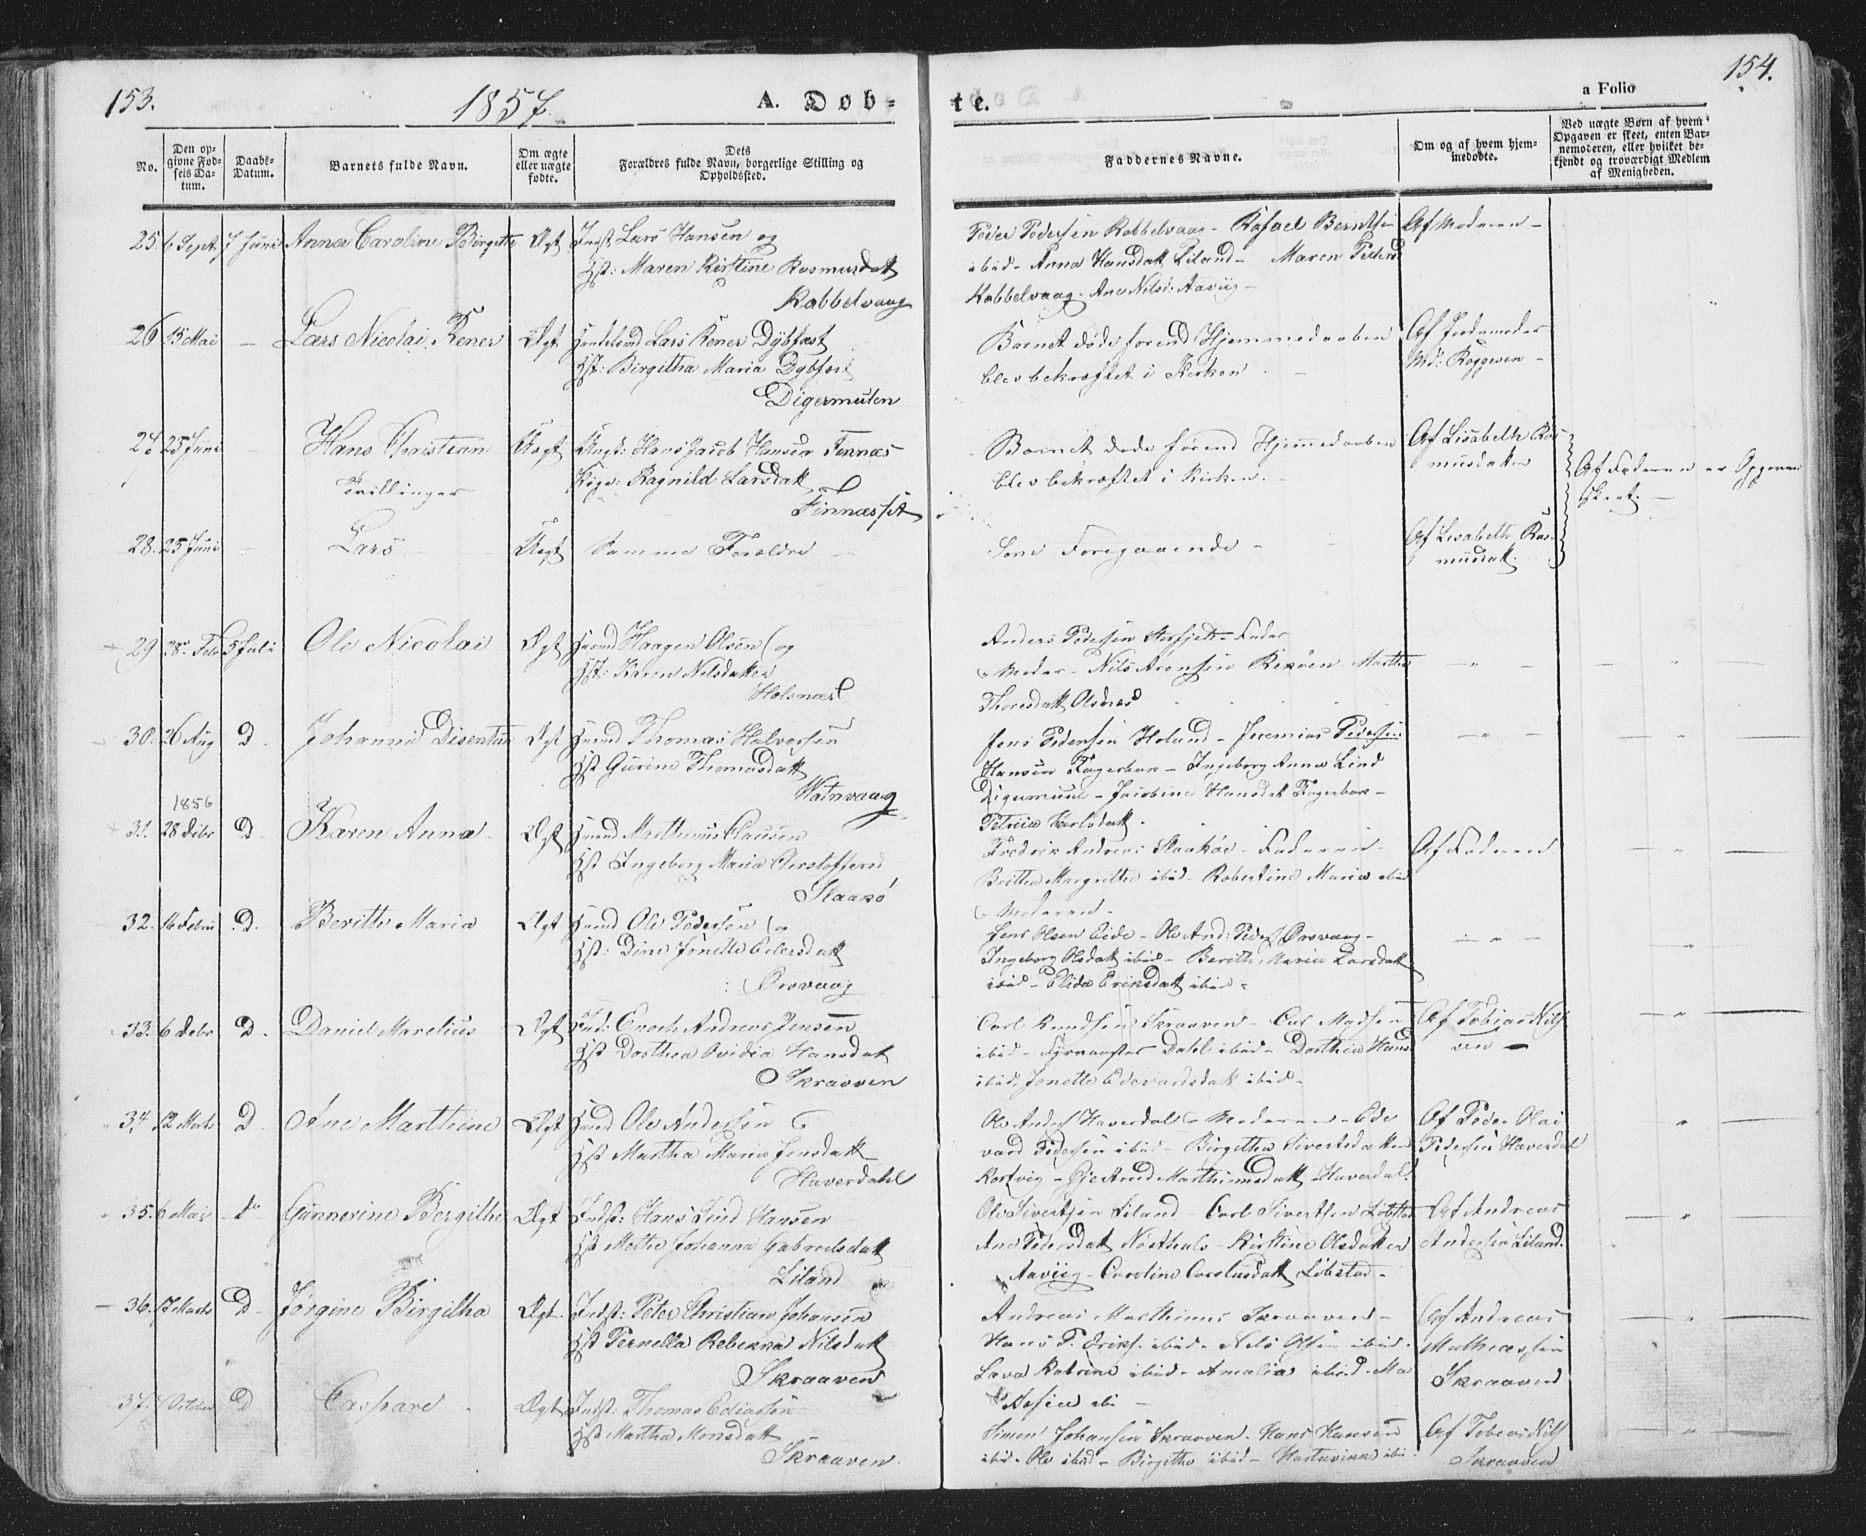 153.
1857.
A. Dob-
te.
a Folio
154.
No.
Den op-
givne Fød-
sels Da-
tum.
Daabs-
Datum.
Barnets fulde Navn.
Om ægte
eller uægte
fødte.
Dets
Forældres fulde Navn, borgerlige Stilling og
Opholdssted.
Faddernes Navne.
Om og af hvem hjem-
medøbte.
Ved uægte Børn af hvem
Opgaven er skeet, enten Bar-
nemoderen, eller hvilket be-
kjendt og troværdigt Medlem
af Menigheden.
25 6 Sept. 7 Juni Anna Caroline Birgitte Ægt Indst Lars Hansen og
Hst: Maren Kirstine Rasmusdatt
Rabbelvaag
Peder Pedersen Rabbelvaag - Rafael Berntsen
ibid - Anna Hansdatt Liland - Maren Peders
Rabbelvaag. Ane Nilsd: Aaviig -
Af Moderen -
26 15 Mai - Lars Nicolai Rener Ægt Lars Rener Dybfest
Hst: Birgitha Maria Dybfest
Digermulen
Barnet døde forend Hjemmedaaben
blev bekræftet i Kirken. -
Af Jordemoder
Md: Roggwen -
27 25 Juni - Hans Christian Uægt Ungk: Hans Jacob Hansen Finnæs
Tvillinger
Pige: Ragnild Larsdatt
Finnæsset
Barnet døde førend Hjemmedaaben
blev bekræftet i Kirken. -
Af Lisabeth Ras-
musdatter
Af Faderen er Opgaven
skeet. -
28. 25 Juni - Lars - Uægt Samme Forældre -
Som Foregaaende -
Af Lisabeth Ras-
musdatt.
29 28 Feb 5 Juli Ole Nicolai Ægt Huusmd Haagen Olsen og
Hst: Karen Nilsdatter
Holsnæs
Anders Pedersen - Fader
Moder - Nils Arensen - Marthe
Thoresdatt Olsnæs
30. 26 Aug D - Johannes Ægt Huusmd Thomas Halvorsen
Hst Gurine Thomasdatt
Watnvaag
Jens Pedersen Holand - Jeremias Pedersen
Hansen Fagerbar - Ingeborg Anna Lind
Digermuul - Jacobine Hansdat Fagerbar -
Petrine Karlsdatt
1856
31. 28 Febr D - Karen Anna. Ægt Huusmd Marthinus Clausen
Hst Ingeborg Maria
Staarø
Fredrik Andreas - Faderen
Britte Margrethe ibid - Robertine Maria ibid
Moderen -
Af Faderen
32. 16 Febru D. Berithe Maria Ægt Huusmd Ole Pedersen og
Hst: Dine Jonette Edersdatt
Ørsvaag
Jens Olsen Eide - Ole And: Peders Ørsvaag -
Ingeborg Olsdatt ibid - Berith Maria Larsdatt
ibid - Elida Eriksdatt ibid -
33. 6 Febr D - Daniel Marelius Ægt Ind: Enoch Andreas Jensen
Hst Dorthea Ovidia Hansdat
Skraaven
Carl Knudsen Skraaven - Carl Madsen
ibid - Dahl ibid - Dorthea Hans
ibid. Jenette Edevardsdatt ibid -
Af Tobias Nils
34. 12 Marts D Ane Marthine Ægt Huusmd Ole Andersen
Hst Martha Maria Jensdatt
Haverdahl
Ole Anders Haverdal - Moderen - Ede
vard Pedersen ibid - Birgitha Sivertsdatter
Rortvig - Marthinusdatt Haverdal
Af Peder Olai
Pedersen Haverdal
35. 6 Mai d° Gunnerine Bergithe Ægt Indst: Hans Lind Hansen
Hst Methe Johanna Gabrielsdatt
Liland
Ole Sivertsen Liland - Carl Sivertsen Løbstad
Ane Pedersdat - Kirstine Olsdatter
Aaviig - Caroline Carolusdatt Løbstad -
Af Andreas
Andersen Liland.
36. 12 Marts D Jørgine Birgitha Ægt. Indst: Peter Christian Johansen
Hst Pernella Rebekka Nilsdatt
Skraaven
Andreas Mathiassen Skraaven -
Hans P. Eriks. ibid - Nils Olsen ibid -
Lava Katrine ibid - Amalia ibid - Ma
Af Andreas
Mathiassen
Skraaven
37. 7 October D Caspare - Ægt Indst: Thomas Eliassen
Hst Martha Monsdatt
Skraaven.
Simon Johansen Skraaven. Hans Hansen
ibid - Ole ibid - Birgitha ibid -
Af Tobias Nils
Skraaven